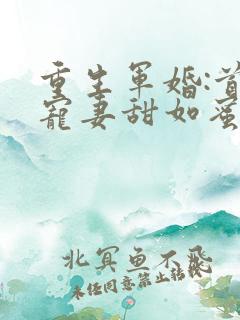 重生軍婚:首
寵妻甜如蜜
北冥鱼不飛
未任同意禁止转载